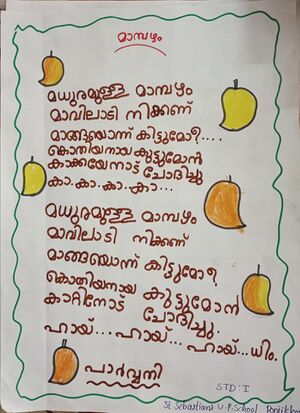 മാമ്പഴം
മധുരമുള്ള മാമ്പഴം
മാവിലാടി നിക്കണ്
മാങ്ങയൊന്ന് കിട്ടുമോ?....
കൊതിയനായ കുട്ടുമോൻ
കാക്കയോട് ചോദിച്ചു
കാ. കാ. കാ. കാ...
മധുരമുള്ള മാമ്പഴം
മാവിലാടി നിക്കണ്
മാങ്ങയൊന്ന് കിട്ടുമോ?
കൊതിയനായ കുട്ടുമോൻ
കാറ്റിനോട് ചോദിച്ചു.
ഹായ്... ഹായ്... ഹായ്...ധിം.
പാർവ്വനി
STD:I
St Sebastian's U.P.School